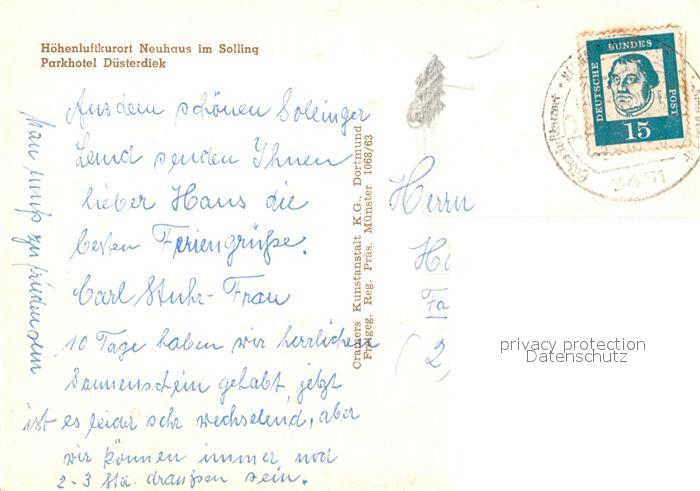 Höhenluftkurort Neuhaus im Solling
Parkhotel Düsterdiek
Aus dem schönen Sollinger
Land senden Ihnen
lieber Hans die
besten Feriengrüße.
Carl Stuhr - Frau
10 Tage haben wir herrlichen
Sonnenschein gehabt, jetzt
ist es leider sehr wechselnd, aber
wir können immer noch
2-3 Std. draußen sein.
Man muß zufrieden sein
Cramers Kunstanstalt K.G., Dortmund
Freigeg. Reg. Präs. Münster 1068/63
Herrn
(2
DEUTSCHE BUNDES POST
15
3451
privacy protection
Datenschutz